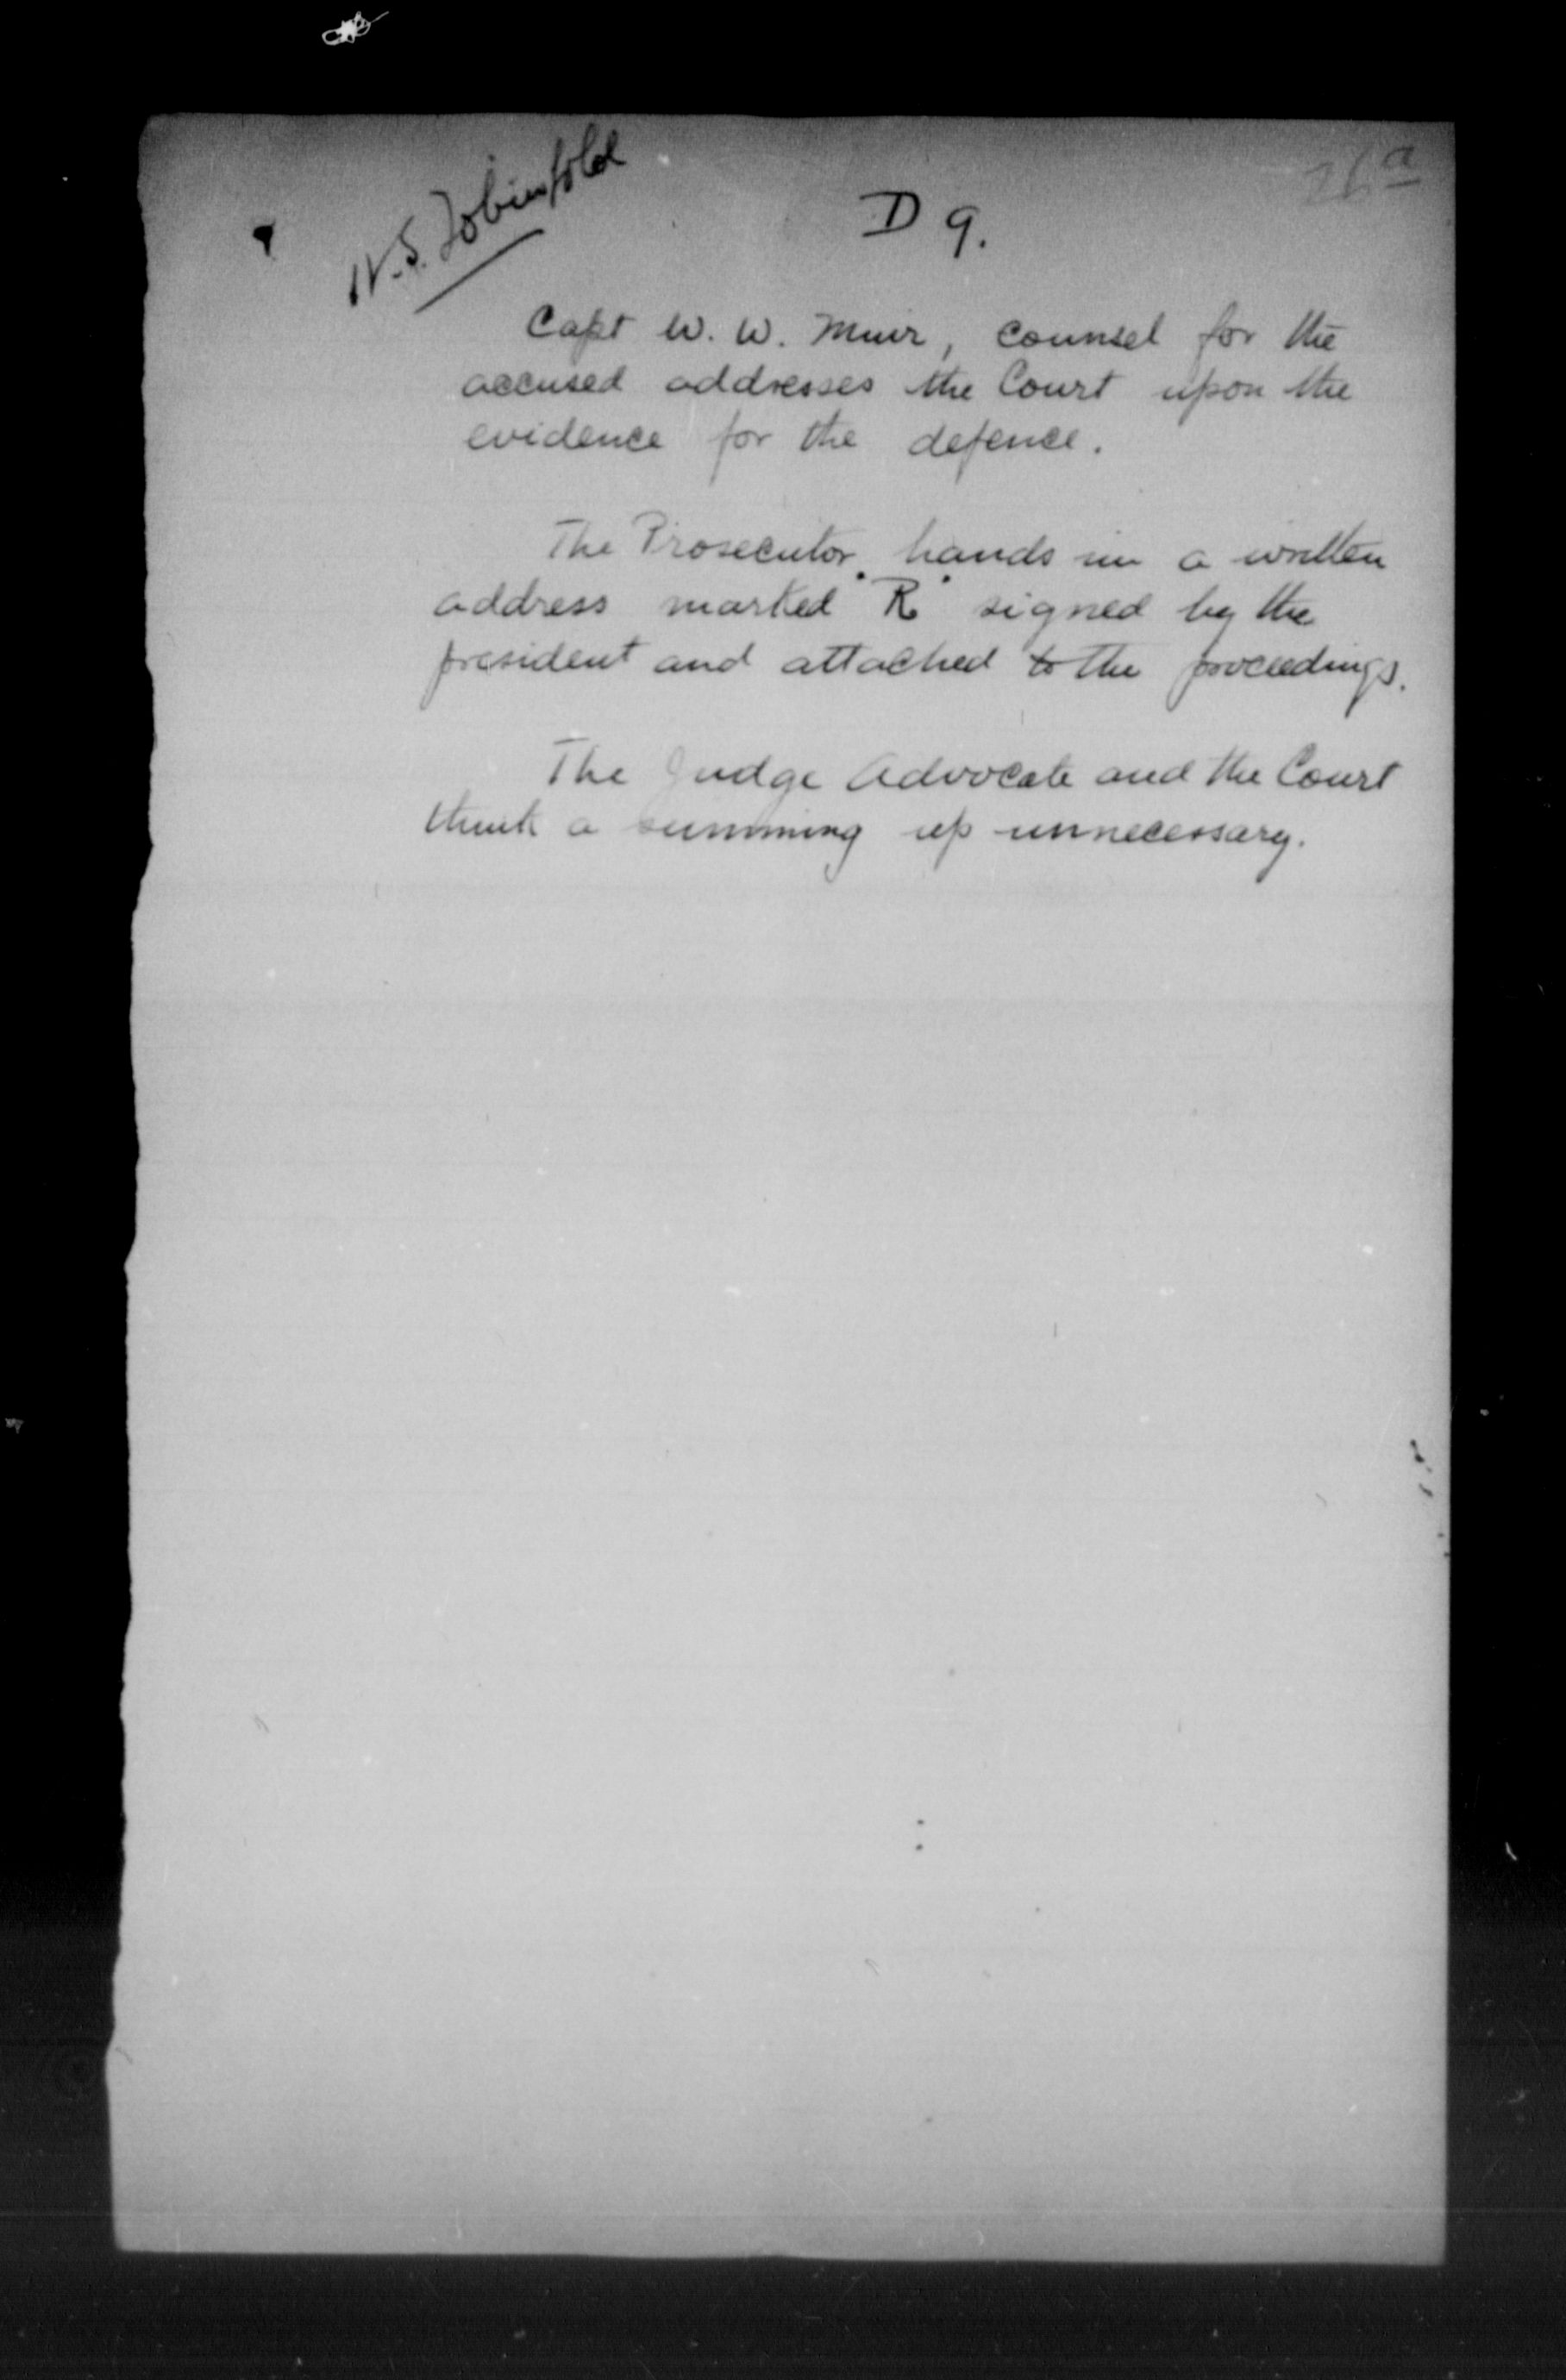 D 9.
Capt W. W. Muir, counsel for the
accused addresses the Court upon the
evidence for the defence.
The Prosecutor hands in a written
address marked "R" signed by the
president and attached to the proceedings.
The Judge Advocate and the Court
think a summing up unnecessary.